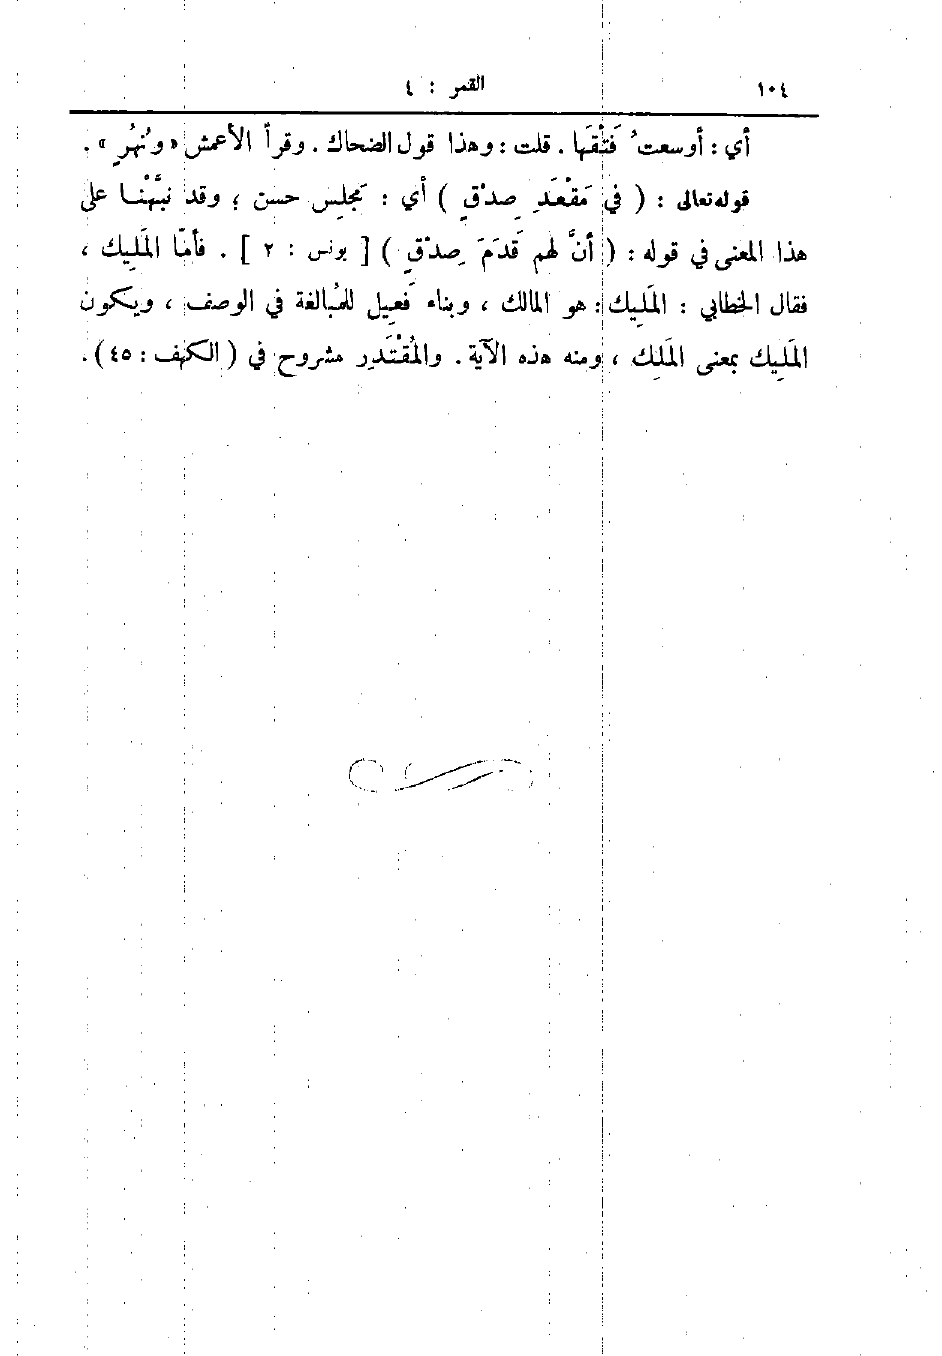 ١٠٤ القمر : ٤
أي : أوسعتُ فَتْقَها . قلت : وهذا قول الضحاك . وقرأ الأعمش « ونُهُرٍ » .
قوله تعالى : ( في مَقْعَدِ صِدْقٍ ) أي : مجلِسٍ حسن ؛ وقد نبَّهْنا على
هذا المعنى في قوله : ( أنَّ لهم قَدَمَ صِدْقٍ ) [ يونس : ٢ ] . فأمّا المَليك ،
فقال الخطابي : المَلِيك : هو المالك ، وبناء فَعِيل للمُبالغة في الوصف ، ويكون
المَلِيك بمعنى المَلِك ، ومنه هذه الآية . والمُقْتَدِر مشروح في ( الكهف : ٤٥ ) .